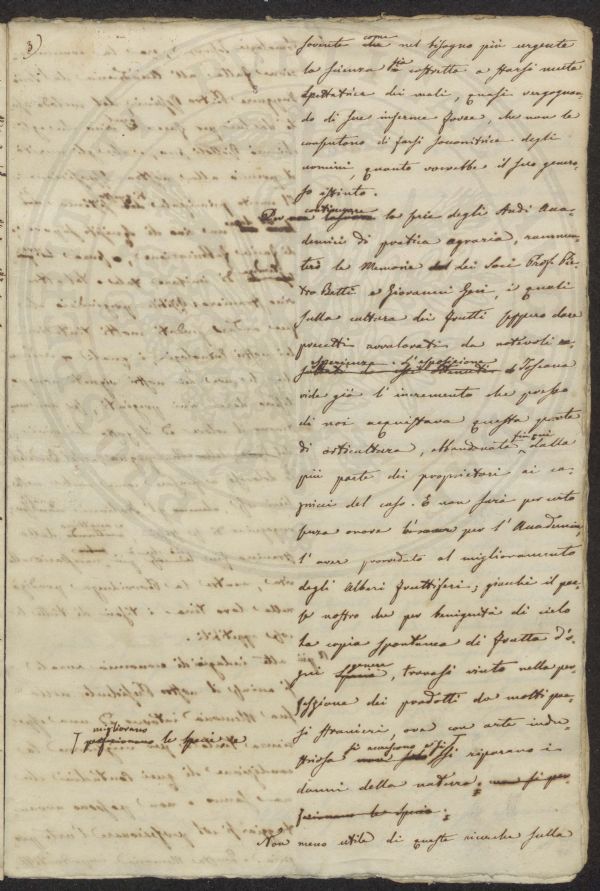 3)
sovente come nel bisogno più urgente
la scienza sia costretta a starsi muta
spettatrice dei mali, quasi vergognan-
do di sue inferme forze, che non le
consentono di farsi soccorritrice degli
uomini, quanto vorrebbe il suo genero-
so istinto.
continuare la serie degli Studi Acca-
demici di poetica agraria, rammen-
terò le Memorie dei Soci Prof. Pie-
tro Betti e Giovanni Gori, i quali
sulla cultura dei frutti seppero dare
precetti avvalorati da notevoli
esperienze. L'esposizione
Toscana
vide già l'incremento che presso
di noi acquistava questa parte
di orticultura, abbandonata fin qui dalla
più parte dei proprietari ai ca-
pricci del caso. E non sarà per certo
senza onore per l'Accademia,
l'aver provveduto al miglioramento
degli Alberi fruttiferi; giacchè il pae-
se nostro che per benignità di cielo
ha copia spontanea di frutta d'o-
gni genere, trovasi vinto nella per-
fezione dei prodotti da molti pae-
si stranieri, ove con arte indu-
striosa si riparano i
danni della natura,
migliorano
le specie
Non meno utile di queste ricerche sulla